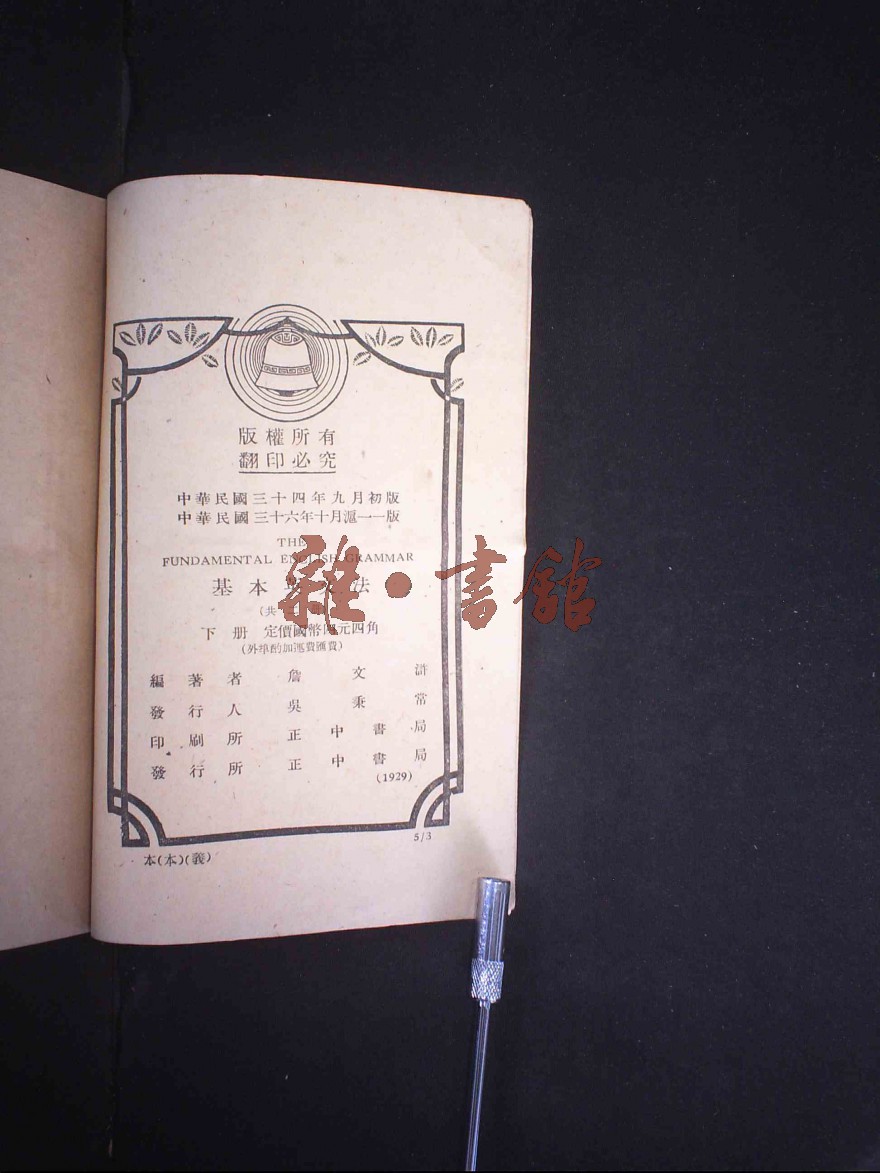 版權所有
翻印必究
中華民國三十四年九月初版
中華民國三十六年十月滬一一版
THE
FUNDAMENTAL ENGLISH GRAMMAR
基本英文法
(共二冊)
下冊 定價國幣四元四角
(外埠酌加運費匯費)
編著者 詹文滸
發行人 吳秉常
印刷所 正中書局
發行所 正中書局
(1929)
5/3
本(本)(義)
雜·書館